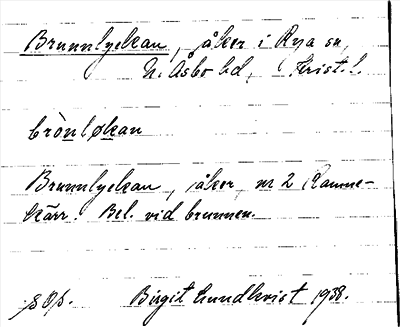 Brunnlyckan, åker i Rya sn,
N. Åsbo hd, Krist. l.
brònløkan
Brunnlyckan, åker, nr 2 Ramne-
kärr. Bel. vid brunnen.
Birgit Lundkvist 1938.